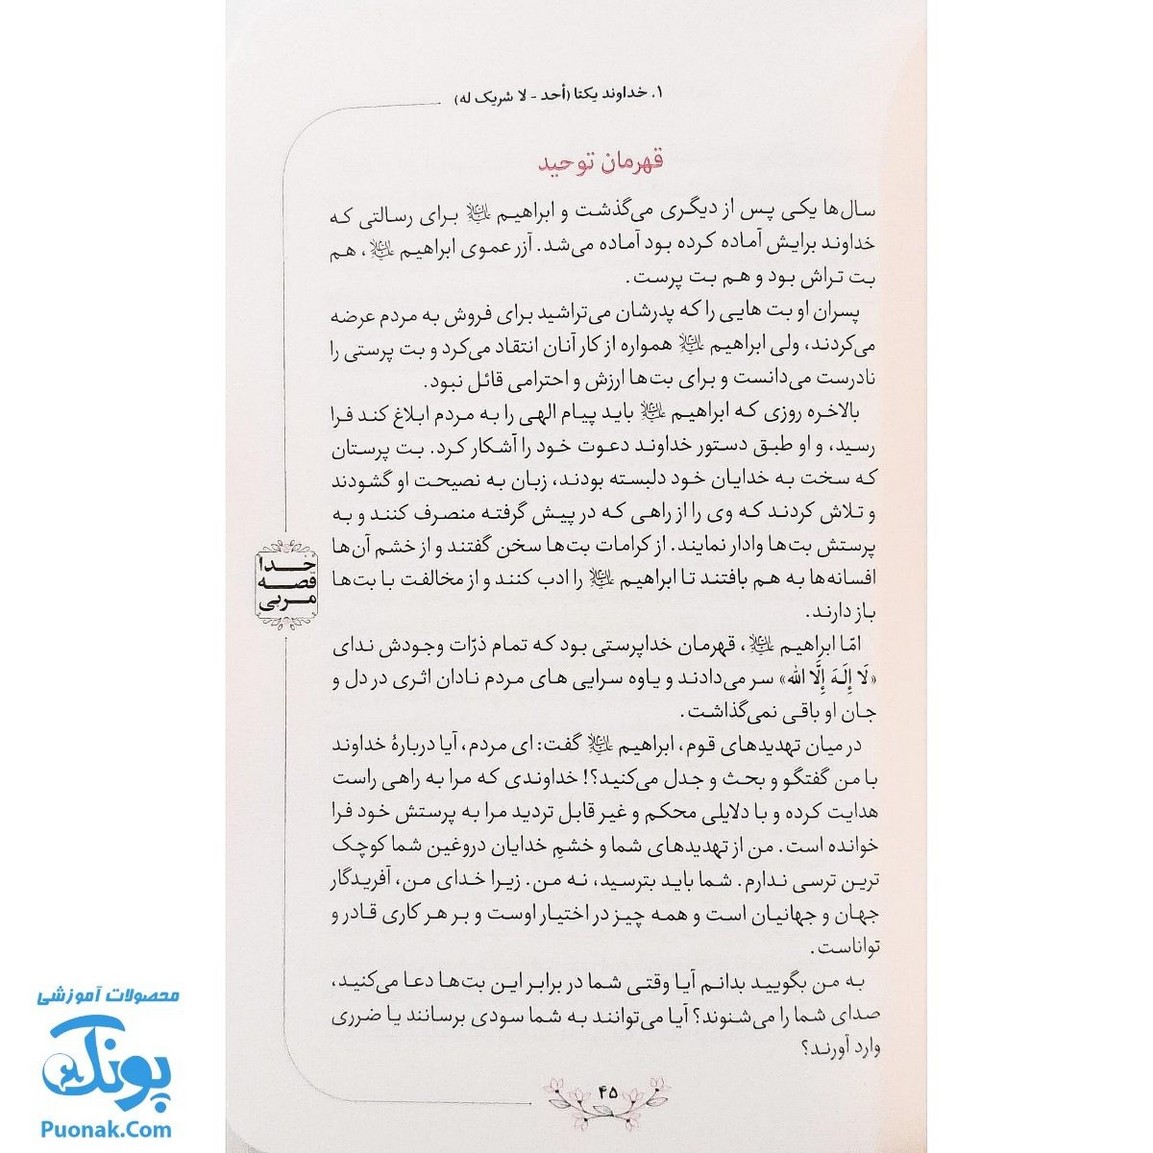 ۱. خداوند یکتا (أحد - لا شریک له)
قهرمان توحید
سال‌ها یکی پس از دیگری می‌گذشت و ابراهیم علیه‌السلام برای رسالتی که
خداوند برایش آماده کرده بود آماده می‌شد. آزر عموی ابراهیم علیه‌السلام، هم
بت تراش بود و هم بت پرست.
پسران او بت هایی را که پدرشان می‌تراشید برای فروش به مردم عرضه
می‌کردند، ولی ابراهیم علیه‌السلام همواره از کار آنان انتقاد می‌کرد و بت پرستی را
نادرست می‌دانست و برای بت‌ها ارزش و احترامی قائل نبود.
بالاخره روزی که ابراهیم علیه‌السلام باید پیام الهی را به مردم ابلاغ کند فرا
رسید، و او طبق دستور خداوند دعوت خود را آشکار کرد. بت پرستان
که سخت به خدایان خود دلبسته بودند، زبان به نصیحت او گشودند
و تلاش کردند که وی را از راهی که در پیش گرفته منصرف کنند و به
پرستش بت‌ها وادار نمایند. از کرامات بت‌ها سخن گفتند و از خشم آن‌ها
افسانه‌ها به هم بافتند تا ابراهیم علیه‌السلام را ادب کنند و از مخالفت با بت‌ها
باز دارند.
امّا ابراهیم علیه‌السلام، قهرمان خداپرستی بود که تمام ذرّات وجودش ندای
«لَا إِلَهَ إِلَّا الله» سر می‌دادند و یاوه سرایی های مردم نادان اثری در دل و
جان او باقی نمی‌گذاشت.
در میان تهدیدهای قوم، ابراهیم علیه‌السلام گفت: ای مردم، آیا دربارهٔ خداوند
با من گفتگو و بحث و جدل می‌کنید؟! خداوندی که مرا به راهی راست
هدایت کرده و با دلایلی محکم و غیر قابل تردید مرا به پرستش خود فرا
خوانده است. من از تهدیدهای شما و خشمِ خدایان دروغین شما کوچک
ترین ترسی ندارم. شما باید بترسید، نه من. زیرا خدای من، آفریدگار
جهان و جهانیان است و همه چیز در اختیار اوست و بر هر کاری قادر و
تواناست.
به من بگویید بدانم آیا وقتی شما در برابر این بت‌ها دعا می‌کنید،
صدای شما را می‌شنوند؟ آیا می‌توانند به شما سودی برسانند یا ضرری
وارد آورند؟
۴۵
خدا
قصه
مربی
محصولات آموزشی
پونک
Puonak.Com